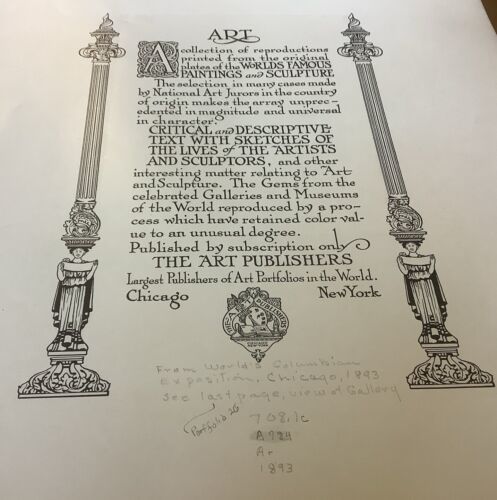 ART
A collection of reproductions
printed from the original
plates of the WORLDS FAMOUS
PAINTINGS and SCULPTURE
The selection in many cases made
by National Art Jurors in the country
of origin makes the array unprec-
edented in magnitude and universal
in character.
CRITICAL and DESCRIPTIVE
TEXT WITH SKETCHES OF
THE LIVES of THE ARTISTS
AND SCULPTORS, and other
interesting matter relating to Art
and Sculpture. The Gems from the
celebrated Galleries and Museums
of the World reproduced by a pro-
cess which have retained color val-
ue to an unusual degree.
Published by subscription only
THE ART PUBLISHERS
Largest Publishers of Art Portfolios in the World.
Chicago New York
From World's Columbian
Exposition, Chicago, 1893
See last page, view of Gallery
Portfolio 26
708.1c
A784
Ar
1893